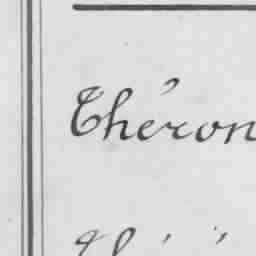 Théron